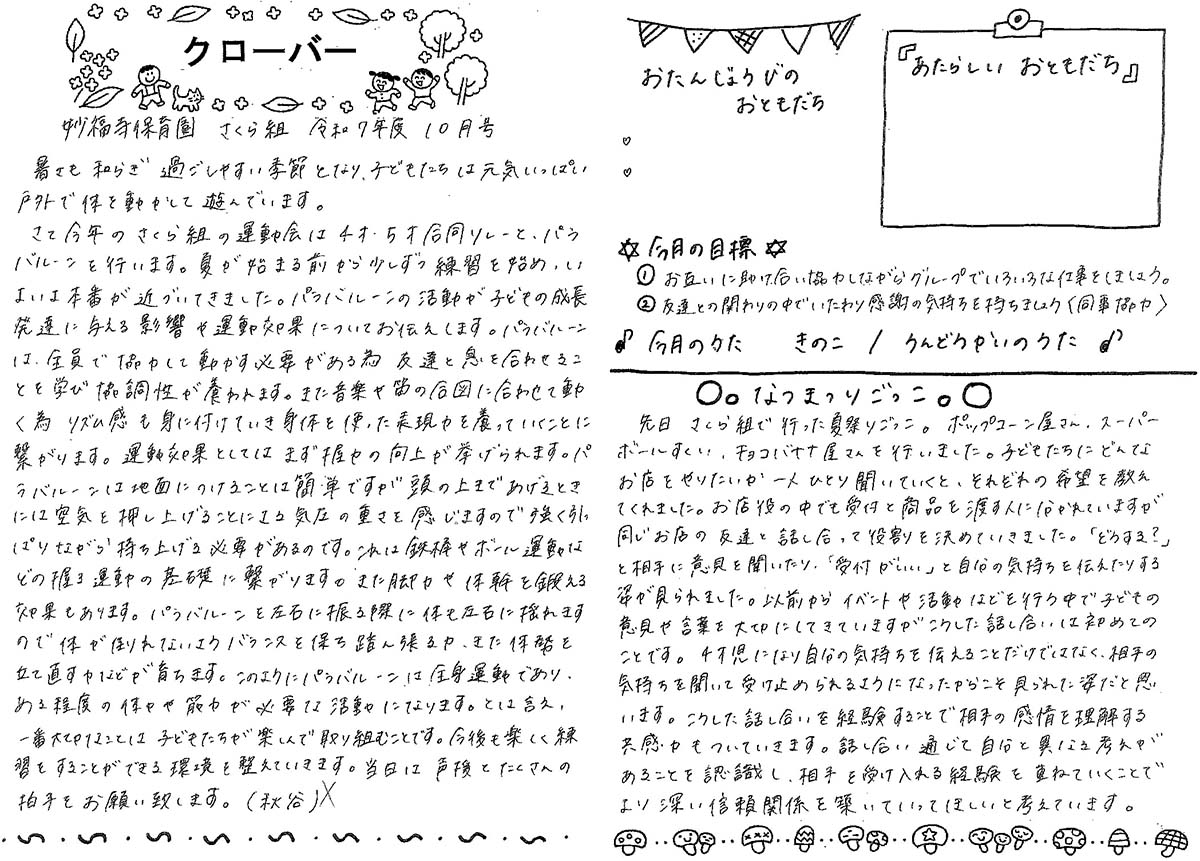 クローバー
妙福寺保育園 さくら組 令和7年度 10月号
暑さも和らぎ過ごしやすい季節となり、子どもたちは元気いっぱい
戸外で体を動かして遊んでいます。
さて今年のさくら組の運動会は4才・5才合同リレーと、パラ
バルーンを行います。夏が始まる前から少しずつ練習を始め、い
よいよ本番が近づいてきました。パラバルーンの活動が子どもの成長
発達に与える影響や運動効果についてお伝えします。パラバルーン
は、全員で協力して動かす必要がある為友達と息を合わせるこ
とを学び協調性が養われます。また音楽や笛の合図に合わせて動
く為リズム感も身に付けていき身体を使った表現力を養っていくことに
繋がります。運動効果としてはまず握力の向上が挙げられます。パ
ラバルーンは地面につけることは簡単ですが頭の上まであげるとき
には空気を押し上げることによる気圧の重さを感じますので強く引っ
ぱりながら持ち上げる必要があるのです。これは鉄棒やボール運動な
どの握る運動の基礎に繋がります。また脚力や体幹を鍛える
効果もあります。パラバルーンを左右に振る際に体も左右に揺れます
ので体が倒れないようバランスを保ち踏ん張る力、また体勢を
立て直す力などが育ちます。このようにパラバルーンは全身運動であり、
ある程度の体力や筋力が必要な活動になります。とは言え、
一番大切なことは子どもたちが楽しんで取り組むことです。今後も楽しく練
習をすることができる環境を整えていきます。当日は声援とたくさんの
拍手をお願い致します。(秋谷)
おたんじょうびの
おともだち
♡
♡
『あたらしい おともだち』
✡今月の目標✡
① お互いに助け合い協力しながらグループでいろいろな仕事をしましょう。
② 友達との関わりの中でいたわり感謝の気持ちを持ちましょう〈同事協力〉
♪ 今月のうた きのこ / うんどうかいのうた ♪
○。なつまつりごっこ。○
先日さくら組で行った夏祭りごっこ。ポップコーン屋さん、スーパー
ボールすくい、チョコバナナ屋さんを行いました。子どもたちにどんな
お店をやりたいか一人ひとり聞いていくと、それぞれの希望を教え
てくれました。お店役の中でも受付と商品を渡す人に分かれていますが
同じお店の友達と話し合って役割を決めていきました。「どうする?」
と相手に意見を聞いたり、「受付がいい」と自分の気持ちを伝えたりする
姿が見られました。以前からイベントや活動などを行う中で子どもの
意見や言葉を大切にしてきていますがこうした話し合いは初めての
ことです。4才児になり自分の気持ちを伝えることだけではなく、相手の
気持ちを聞いて受け止められるようになったからこそ見られた姿だと思
います。こうした話し合いを経験することで相手の感情を理解する
共感力もついていきます。話し合い通じて自分と異なる考えが
あることを認識し、相手を受け入れる経験を重ねていくことで
より深い信頼関係を築いていってほしいと考えています。